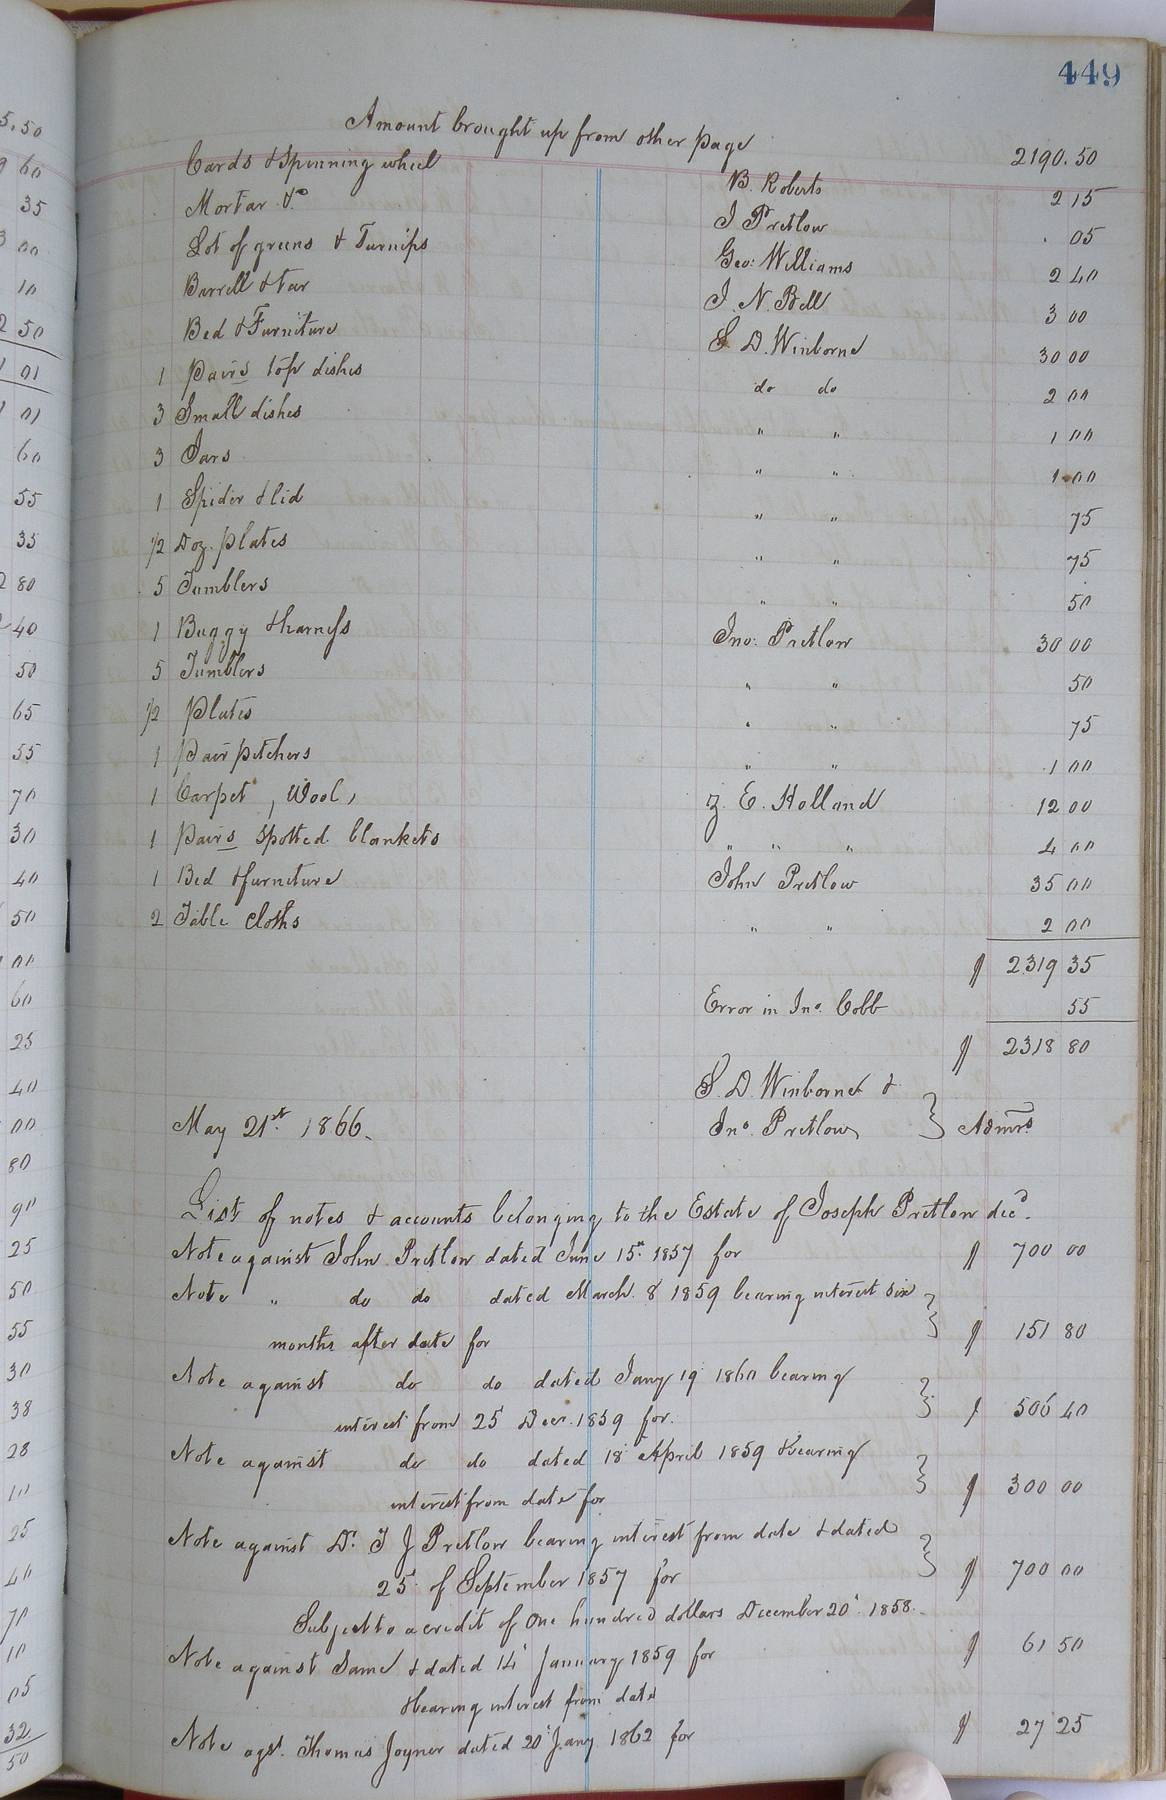 449
Amount brought up from other page 2190.50
Cards & Spinning wheel B. Roberts 2 15
Mortar &c J Pretlow . 05
Lot of greens & Turnips Geo: Williams 2 40
Barrell & tar J. N. Bell 3 00
Bed & Furniture S. D. Winborne 30 00
1 pairs top dishes do do 2 00
3 Small dishes " " 1 00
3 Jars " " 1 00
1 Spider & lid " " 75
1/2 Doz. plates " " 75
5 Tumblers " " 50
1 Buggy & harness Jno: Pretlow 30 00
5 Tumblers " " 50
1/2 Plates " " 75
1 Pair pitchers " " 1 00
1 Carpet, Wool, Z. E. Holland 12 00
1 Pairs Spotted blankets " " " 4 00
1 Bed & furniture John Pretlow 35 00
2 Table cloths " " 2 00
$ 2319 35
Error in Jno. Cobb 55
$ 2318 80
S. D. Winborne & 
May 21st. 1866. Jno. Pretlow } Admrs
List of notes & accounts belonging to the Estate of Joseph Pretlow decd.
Note against John Pretlow dated June 15th. 1857 for $ 700 00
Note " do do dated March 8 1859 bearing interest six
months after date for } $ 151 80
Note against do do dated Jany 19 1860 bearing
interest from 25 Decr. 1859 for. } $ 506 40
Note against do do dated 18 April 1859 & bearing
interest from date for } $ 300 00
Note against Dr. T J Pretlow bearing interest from date & dated
25 of September 1857 for } $ 700 00
Subject to a credit of One hundred dollars December 20. 1858.
Note against Same & dated 14 January 1859 for $ 61 50
& bearing interest from date
Note agst. Thomas Joyner dated 20 Jany 1862 for $ 27 25